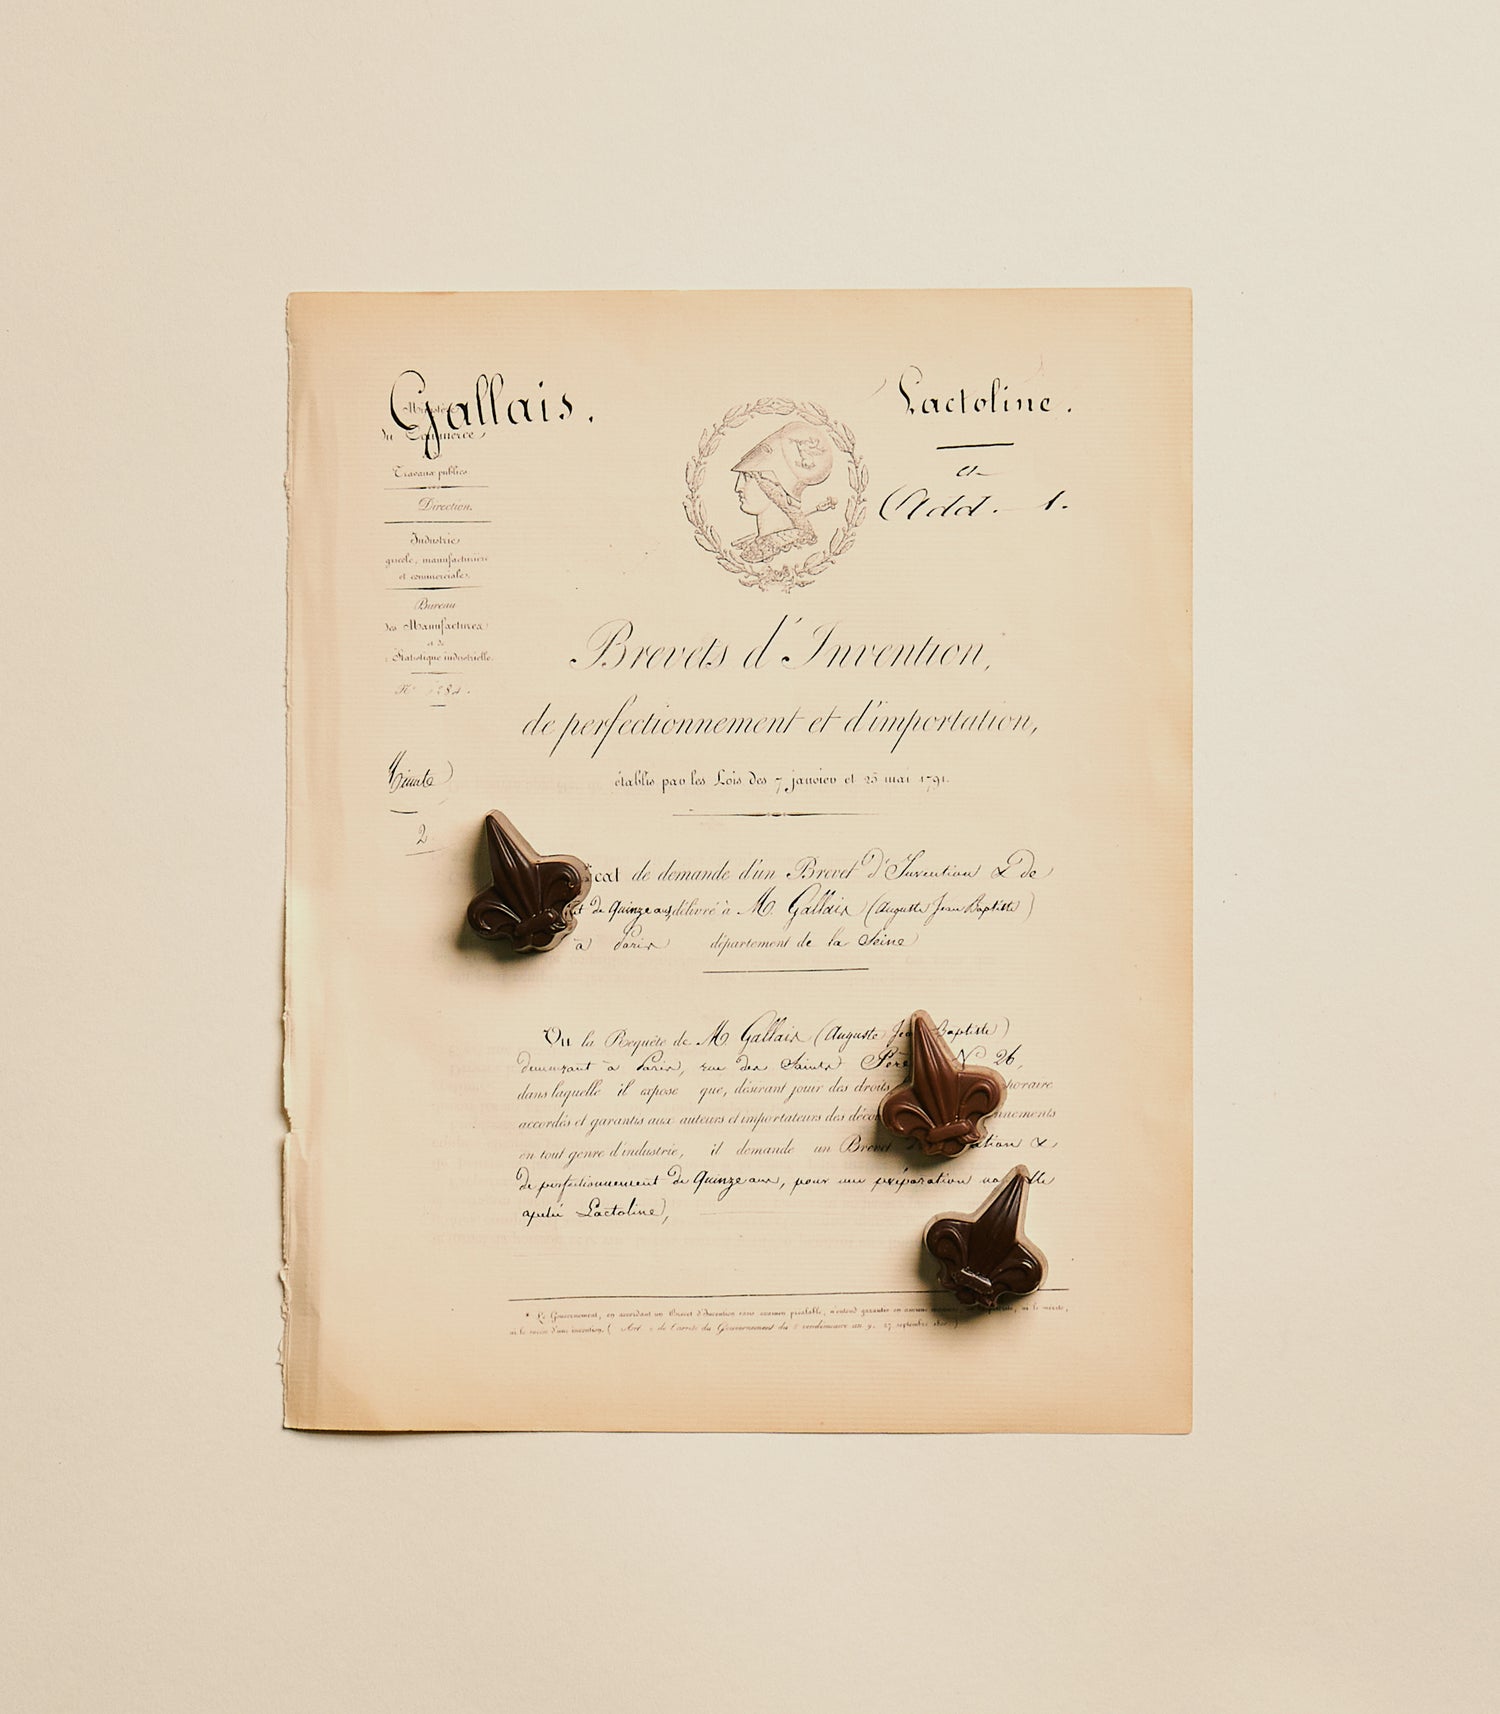 Gallais.
Lactoline.
Add. 1.
du Commerce
Travaux publics
Direction.
Industrie
gricole, manufacturière
et commerciale.
Bureau
des Manufactures
et de
Statistique industrielle.
Brevets d'Invention,
de perfectionnement et d'importation,
établis par les Lois des 7 janvier et 25 mai 1791.
Minute
2
de demande d'un Brevet d'Invention & de
de Quinze ans, délivré à M. Gallais (Auguste Jean Baptiste)
à Paris département de la Seine
Vu la Requête de M. Gallais (Auguste Jean Baptiste)
demeurant à Paris, rue des Saints Père N° 26,
dans laquelle il expose que, désirant jouir des droits
accordés et garantis aux auteurs et importateurs des décou nnements
en tout genre d'industrie, il demande un Brevet &
de perfectionnement de Quinze ans, pour une préparation
Lactoline,
* Le Gouvernement, en accordant un Brevet d'Invention sans examen préalable, n'entend garantir en aucune ni le mérite,
ni le succès d'une invention. ( de l'arrêté du Gouvernement du 5 vendémiaire an 9. 27 septembre